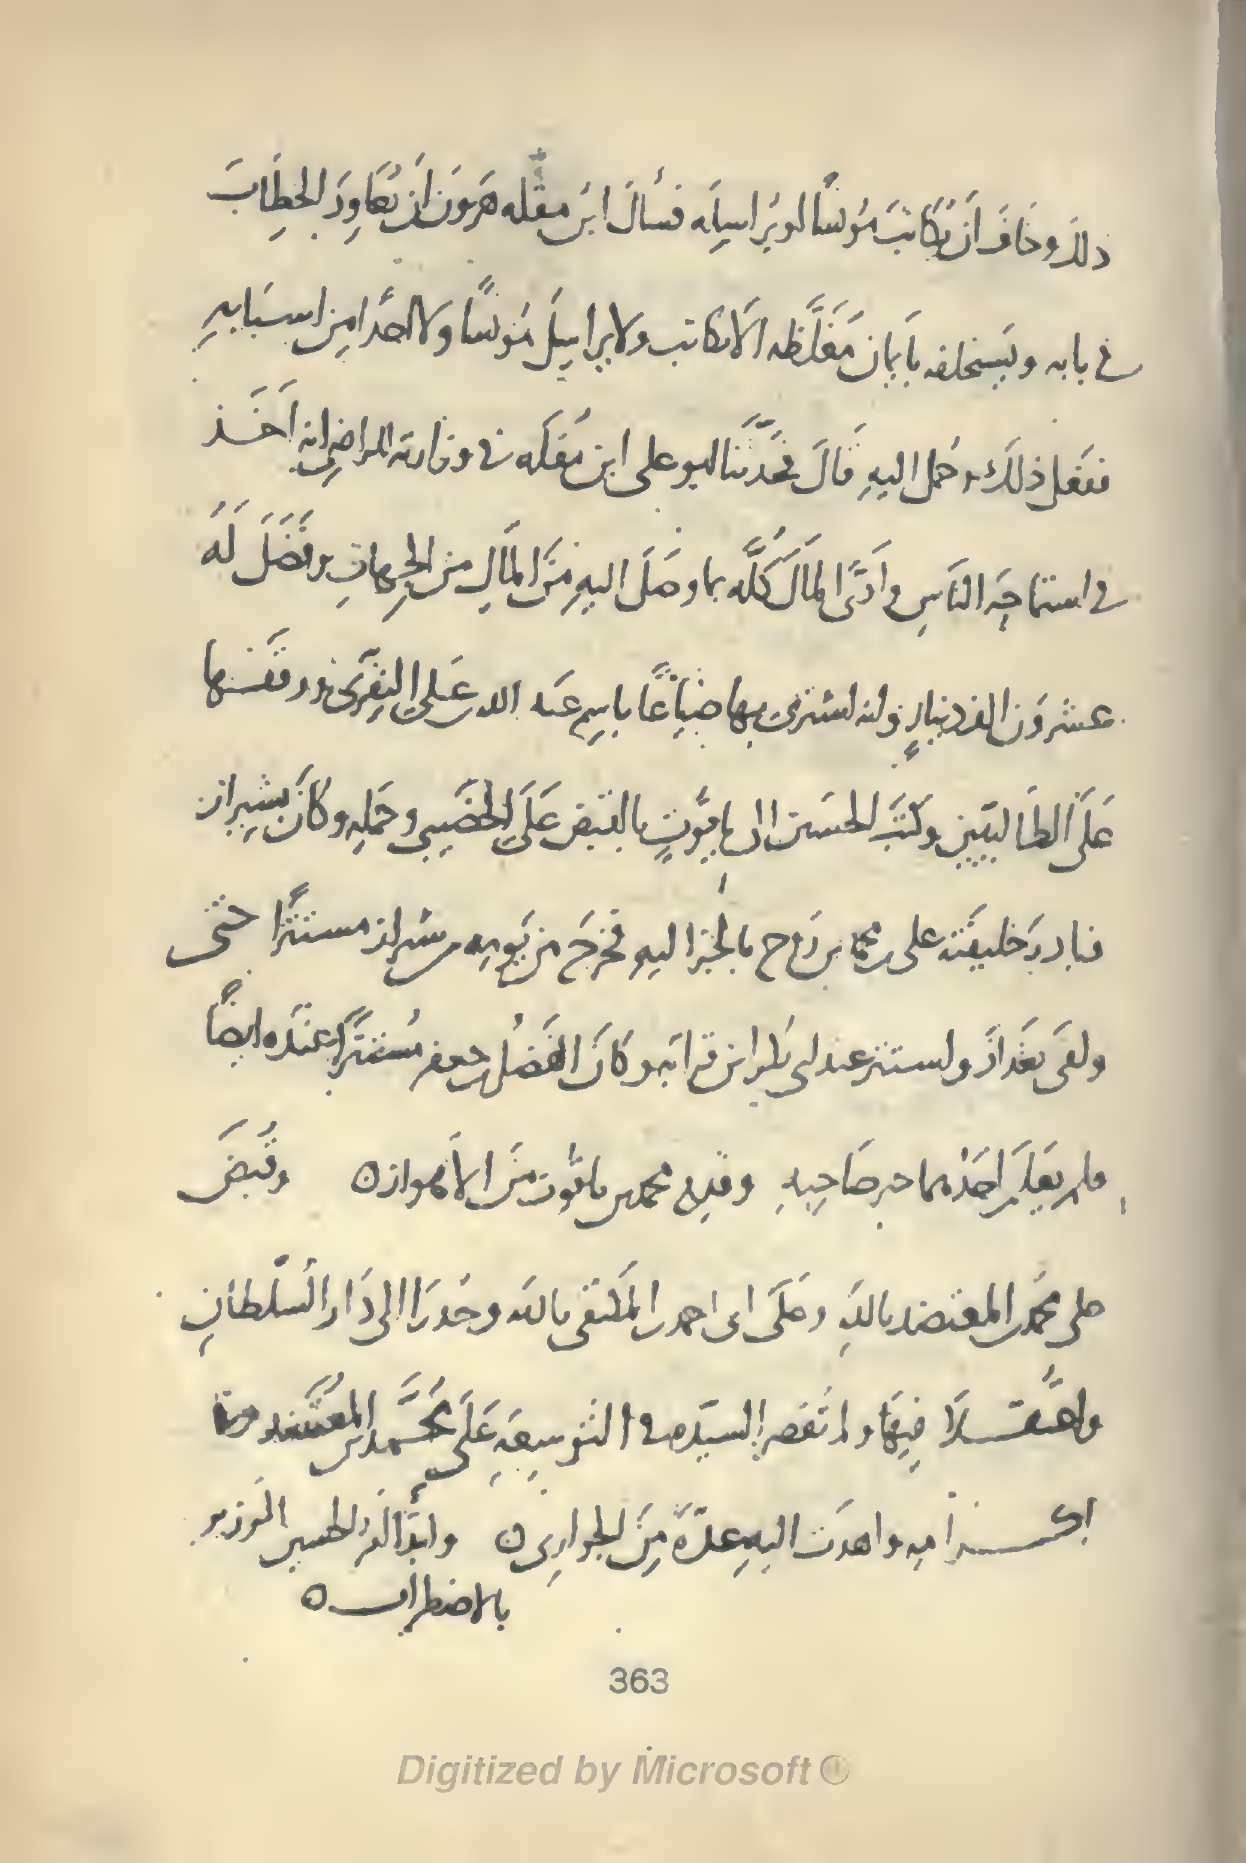 ذلك وخاف أن يُكاتبَ مؤنسًا أو يُراسِلَه فسألَ ابنُ مقله هَرونَ أن يُعَاوِدَ الخِطابَ
في بابه ويَستحلفه بأيمان مُغَلَّظه ألا يكاتب ولا يراسِلَ مُؤنسًا ولا أحدًا من اسبَابهِ
ففعل ذلك وحُمل اليهِ قالَ فحَدَّثَنا ابو على ابن مُقلَه في وزارته للراضِى انه أخَذ
في استماحَة النَاسِ وأدَّى المالَ كُلَّه بما وصَلَ اليهِ مِنَ المالِ من الجِهاتِ وفَضَلَ لَهُ
عشرون الف دينارٍ وانه اشترى بها ضِيَاعًا باسِم عَبد الله بن على النِفَّرى ووقفها
عَلَى الطَالبيين وكَتَبَ الحسَين الى ياقُوتٍ بالقبض عَلَى الخصَيبى وحَملِه وكانَ بشيراز
فبادرَ خليفَته على بن محمد بن رَوح بالخبر اليهِ فخرَجَ من يَومِه من شيراز مستترًا حتى
وافَى بغدَاذَ واستتر عند ابى بكر ابن قرابَه وكَانَ الفَضلُ بن جعفر مُستَترًا عندَه ايضًا
فلم يَعلَم أحَدُهما خبر صَاحِبِهِ وقدِم محمد بن ياقُوت مِنَ الأهواز ه وقُبضَ
على محمد بن المعتضد باللهِ وعَلَى ابى احمد بن المكتفى بالله وحُدِرَا الى دَار السُّلطانِ
واعتُقـلا فيها ولم تُقَصِر السيّده فى التَوسِعَهِ عَلَى مُحَمَّد بن المُعتَضد
اكـرامه واهدَت اليهِ عِدّةً مِنَ الجوارى ه وابتَدا أمرُ الحسين الوَزير
بالاضطراب ه
363
Digitized by Microsoft ®